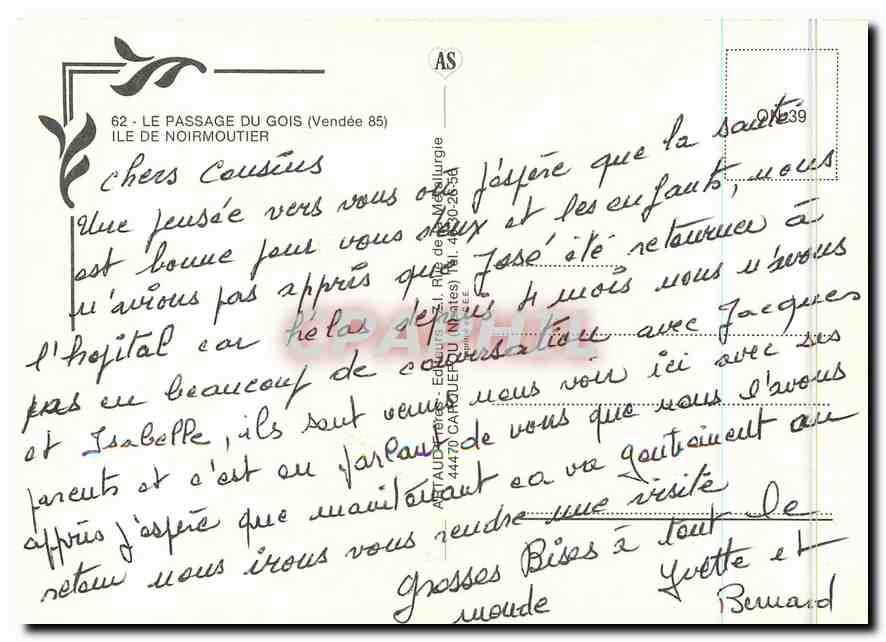 62 - LE PASSAGE DU GOIS (Vendée 85)
ILE DE NOIRMOUTIER
AS
ON 39
chers Cousins
Une pensée vers vous où j'espère que la santé
est bonne pour vous deux et les enfants, nous
n'avions pas appris que José été retourner à
l'hopital car hélas depuis 4 mois nous n'avons
pas eu beaucoup de conversation avec Jacques
et Isabelle, ils sont venus nous voir ici avec ses
parents et c'est en parlant de vous que nous l'avons
appris j'espère que maintenant ca va gentiment au
retour nous irons vous rendre une visite
grosses Bises à tout le
monde
Yvette et
Bernard
ARTAUD Frères, Editeurs - Z.I. Rue de la Métallurgie
44470 CARQUEFOU (Nantes) Tél.
CPARAMA